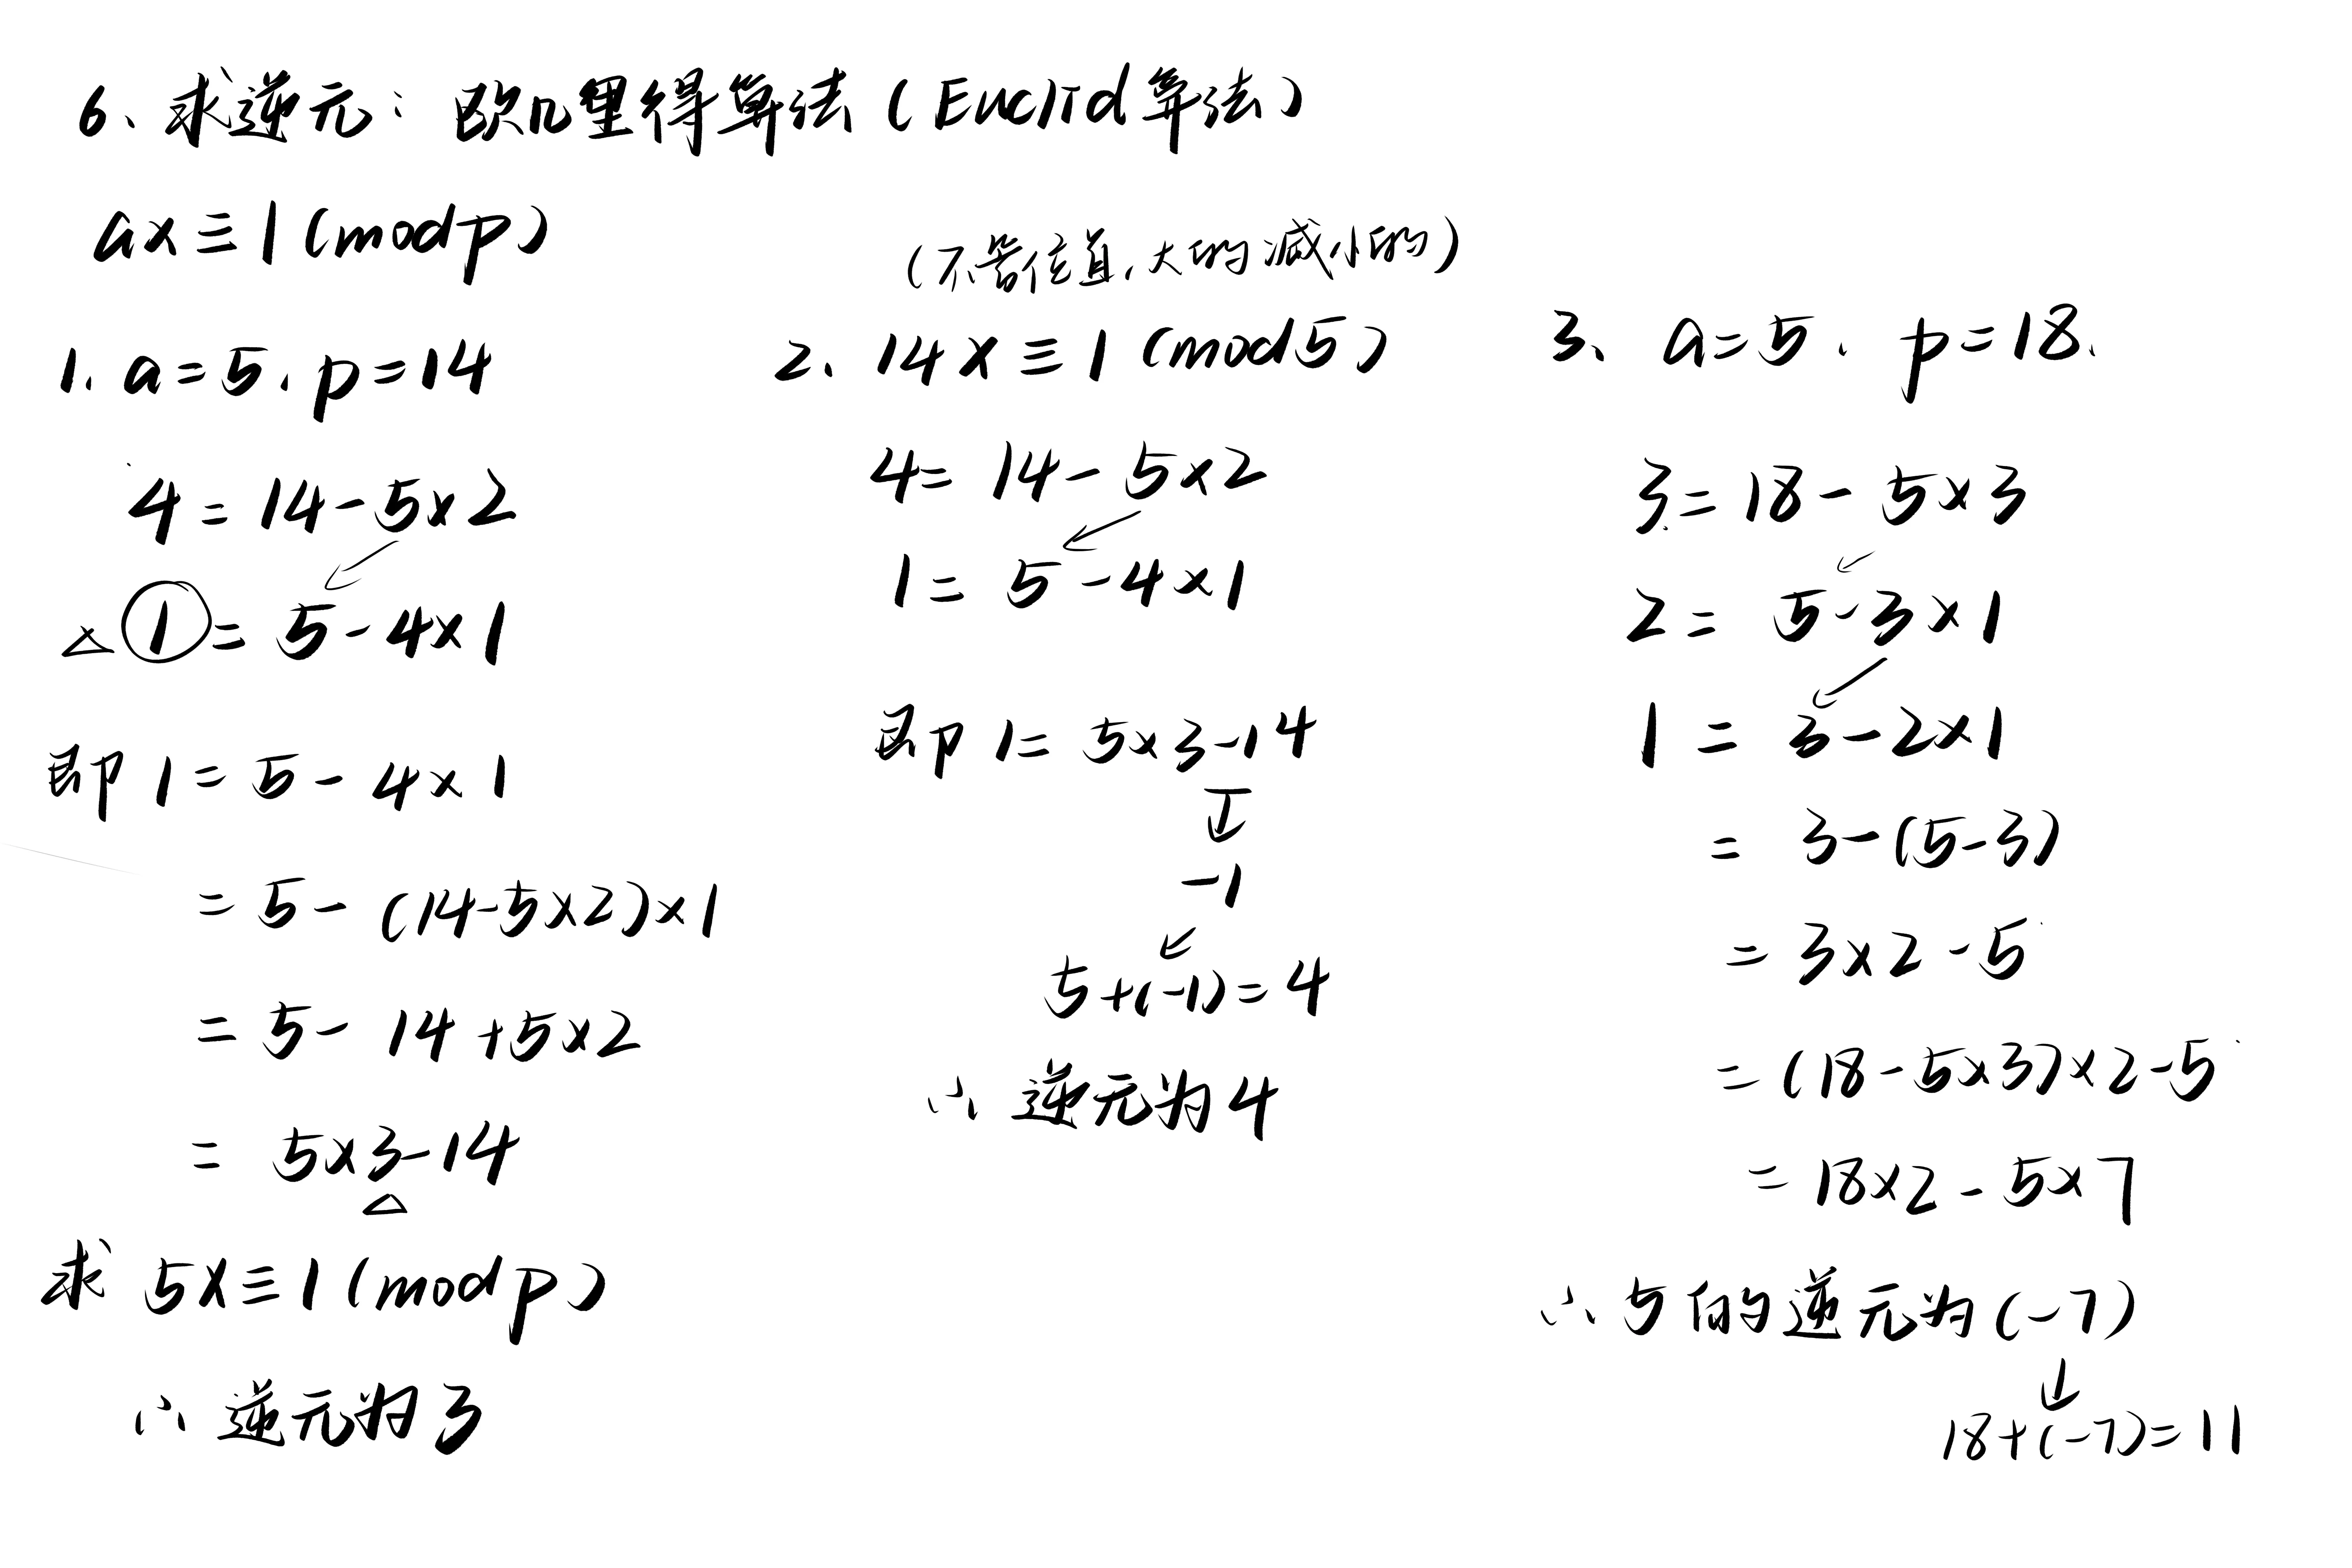 6、求逆元：欧几里得算法（Euclid算法）
ax≡1(mod p)
1. a=5, p=14
4=14-5×2
△①=5-4×1
即 1=5-4×1
=5-(14-5×2)×1
=5-14+5×2
=5×3-14
△
求 5x≡1(mod p)
∴ 逆元为3
(不管位置，大的减小的)
2. 14x≡1(mod 5)
4=14-5×2
1=5-4×1
即 1=5×3-14
↓
-1
5+(-1)=4
∴ 逆元为4
3、a=5, p=18.
3=18-5×3
2=5-3×1
1=3-2×1
=3-(5-3)
=3×2-5
=(18-5×3)×2-5
=18×2-5×7
∴ 5的逆元为(-7)
↓
18+(-7)=11